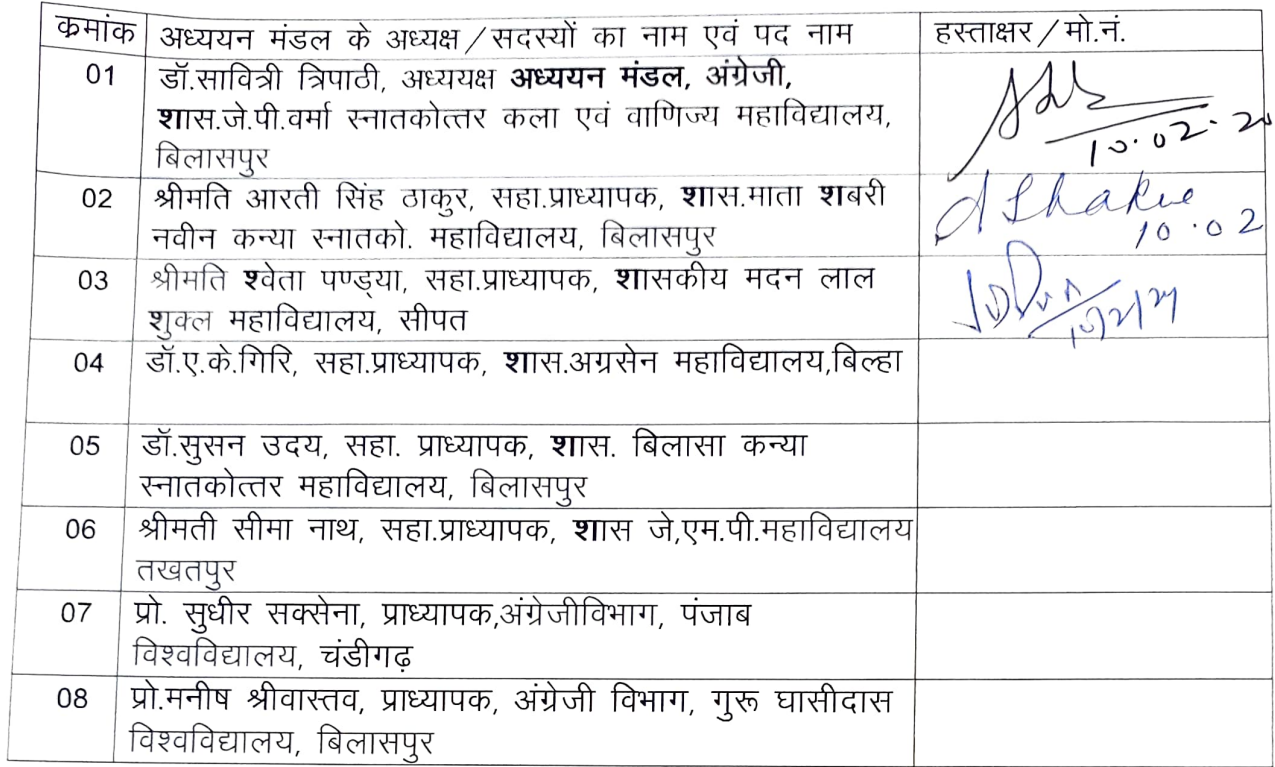 क्रमांक अध्ययन मंडल के अध्यक्ष/सदस्यों का नाम एवं पद नाम हस्ताक्षर/मो.नं.
01 डॉ.सावित्री त्रिपाठी, अध्ययक्ष अध्ययन मंडल, अंग्रेजी,
शास.जे.पी.वर्मा स्नातकोत्तर कला एवं वाणिज्य महाविद्यालय,
बिलासपुर
10.02.20
02 श्रीमति आरती सिंह ठाकुर, सहा.प्राध्यापक, शास.माता शबरी
नवीन कन्या स्नातको. महाविद्यालय, बिलासपुर
10.02
03 श्रीमति श्वेता पण्ड्या, सहा.प्राध्यापक, शासकीय मदन लाल
शुक्ल महाविद्यालय, सीपत
04 डॉ.ए.के.गिरि, सहा.प्राध्यापक, शास.अग्रसेन महाविद्यालय,बिल्हा
05 डॉ.सुसन उदय, सहा. प्राध्यापक, शास. बिलासा कन्या
स्नातकोत्तर महाविद्यालय, बिलासपुर
06 श्रीमती सीमा नाथ, सहा.प्राध्यापक, शास जे,एम.पी.महाविद्यालय
तखतपुर
07 प्रो. सुधीर सक्सेना, प्राध्यापक,अंग्रेजीविभाग, पंजाब
विश्वविद्यालय, चंडीगढ़
08 प्रो.मनीष श्रीवास्तव, प्राध्यापक, अंग्रेजी विभाग, गुरू घासीदास
विश्वविद्यालय, बिलासपुर